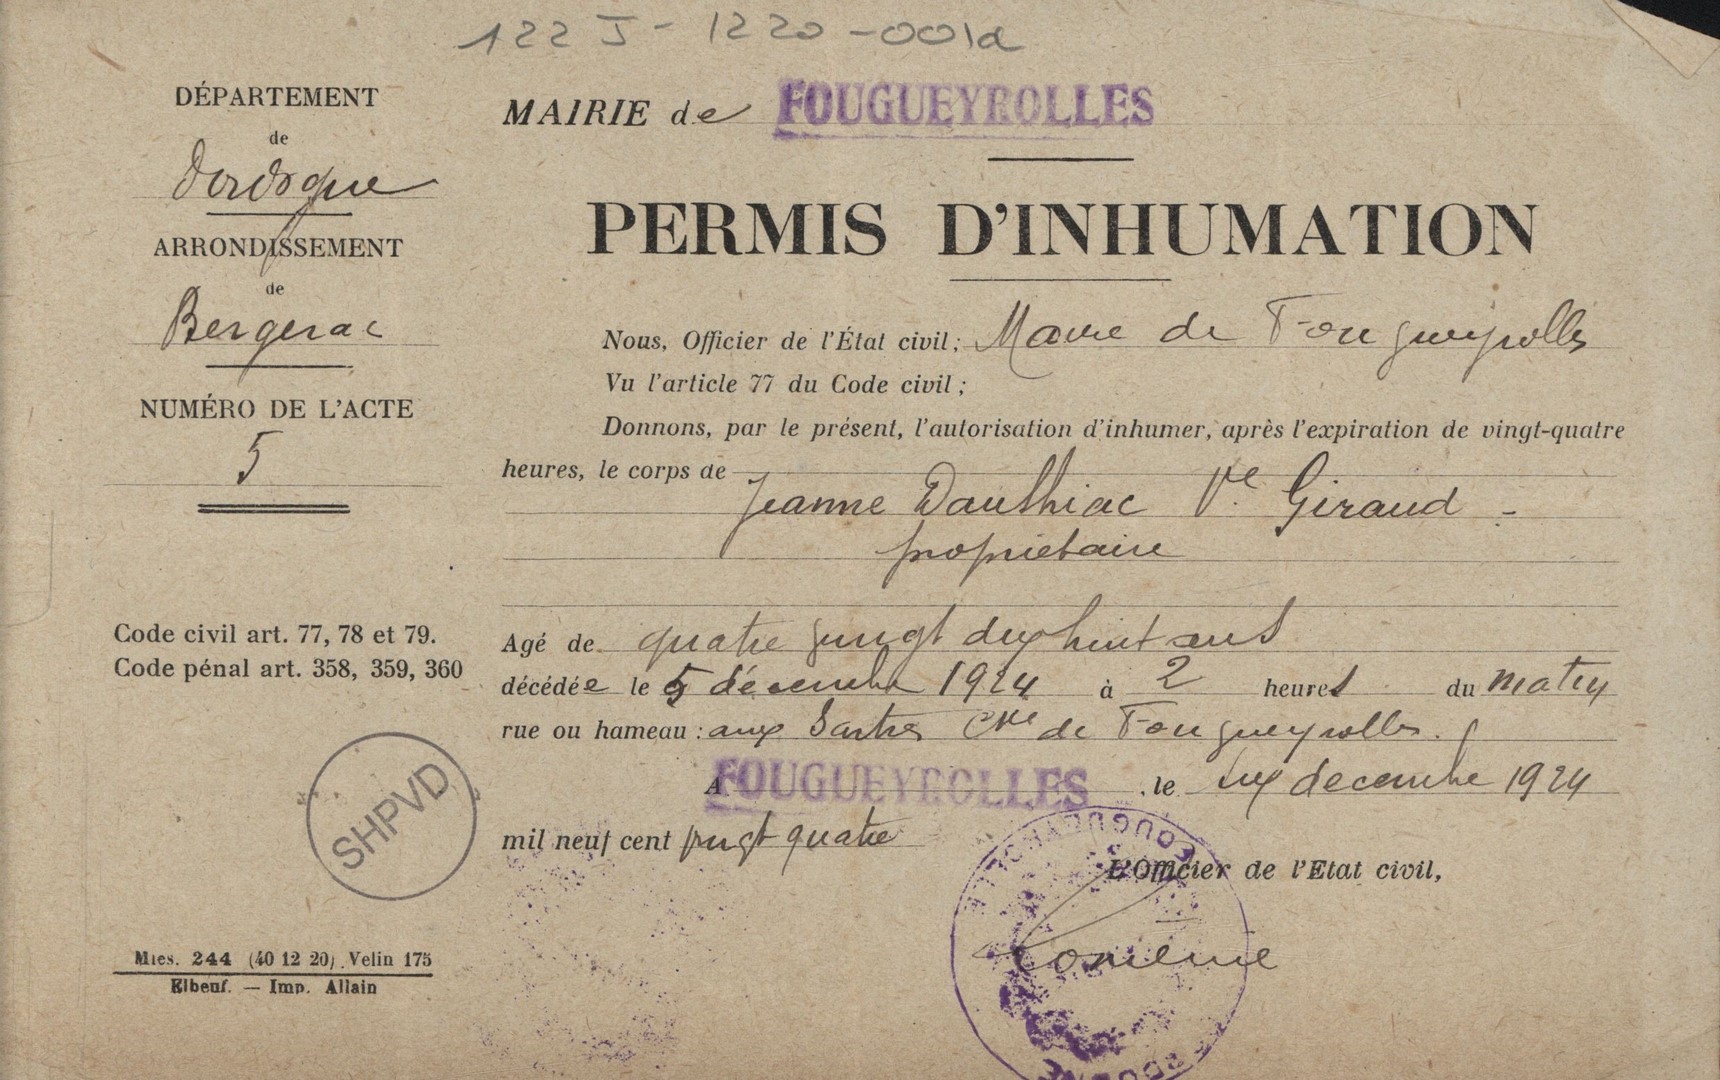 122 J - 1220 - 001a
DÉPARTEMENT
de
Dordogne
ARRONDISSEMENT
de
Bergerac
NUMÉRO DE L'ACTE
5
Code civil art. 77, 78 et 79.
Code pénal art. 358, 359, 360
SHPVD
Mies. 244 (40 12 20) Velin 175
Elbeuf. — Imp. Allain
MAIRIE de FOUGUEYROLLES
PERMIS D'INHUMATION
Nous, Officier de l'État civil; Maire de Fougueyrolles
Vu l'article 77 du Code civil;
Donnons, par le présent, l'autorisation d'inhumer, après l'expiration de vingt-quatre
heures, le corps de
Jeanne Dauthiac Vve Giraud -
propriétaire
Agé de quatre vingt dix huit ans
décédée le 5 décembre 1924 à 2 heures du matin
rue ou hameau: aux Cne de Fougueyrolles.
A FOUGUEYROLLES, le six decembre 1924
mil neuf cent vingt quatre
L'Officier de l'Etat civil,
FOUGUEYROLLES